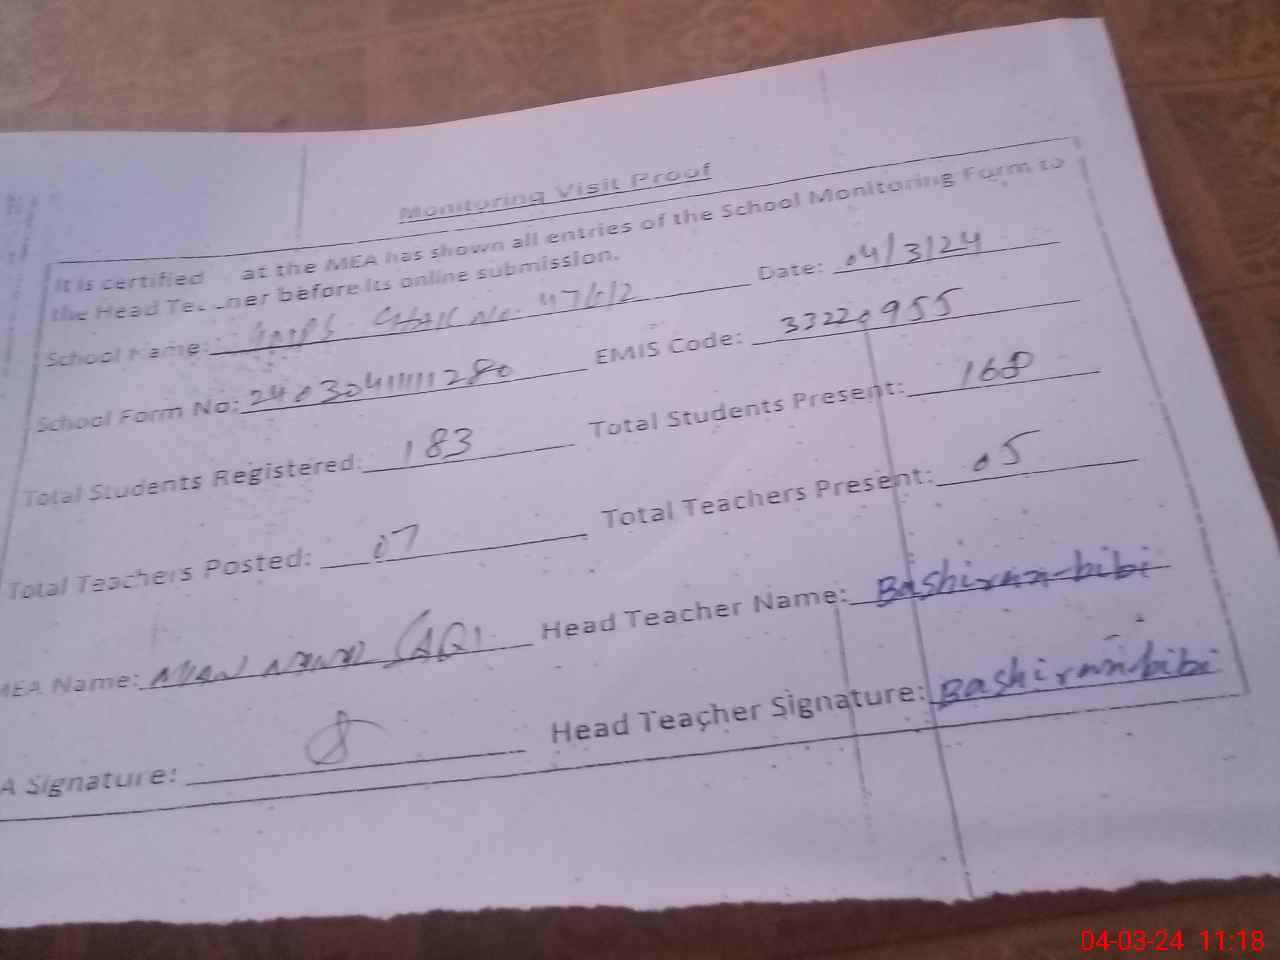 Monitoring Visit Proof
It is certified at the MEA has shown all entries of the School Monitoring Form to
the Head Te ner before its online submission.
School Name: Chak No. 47/12 Date: 04/3/24
School Form No: 2403041111280 EMIS Code: 33220955
Total Students Registered: 183 Total Students Present: 168
Total Teachers Posted: 07 Total Teachers Present: 05
MEA Name: MIAN Head Teacher Name: Bashiran bibi
A Signature: Head Teacher Signature: Bashiran bibi
04-03-24 11:18